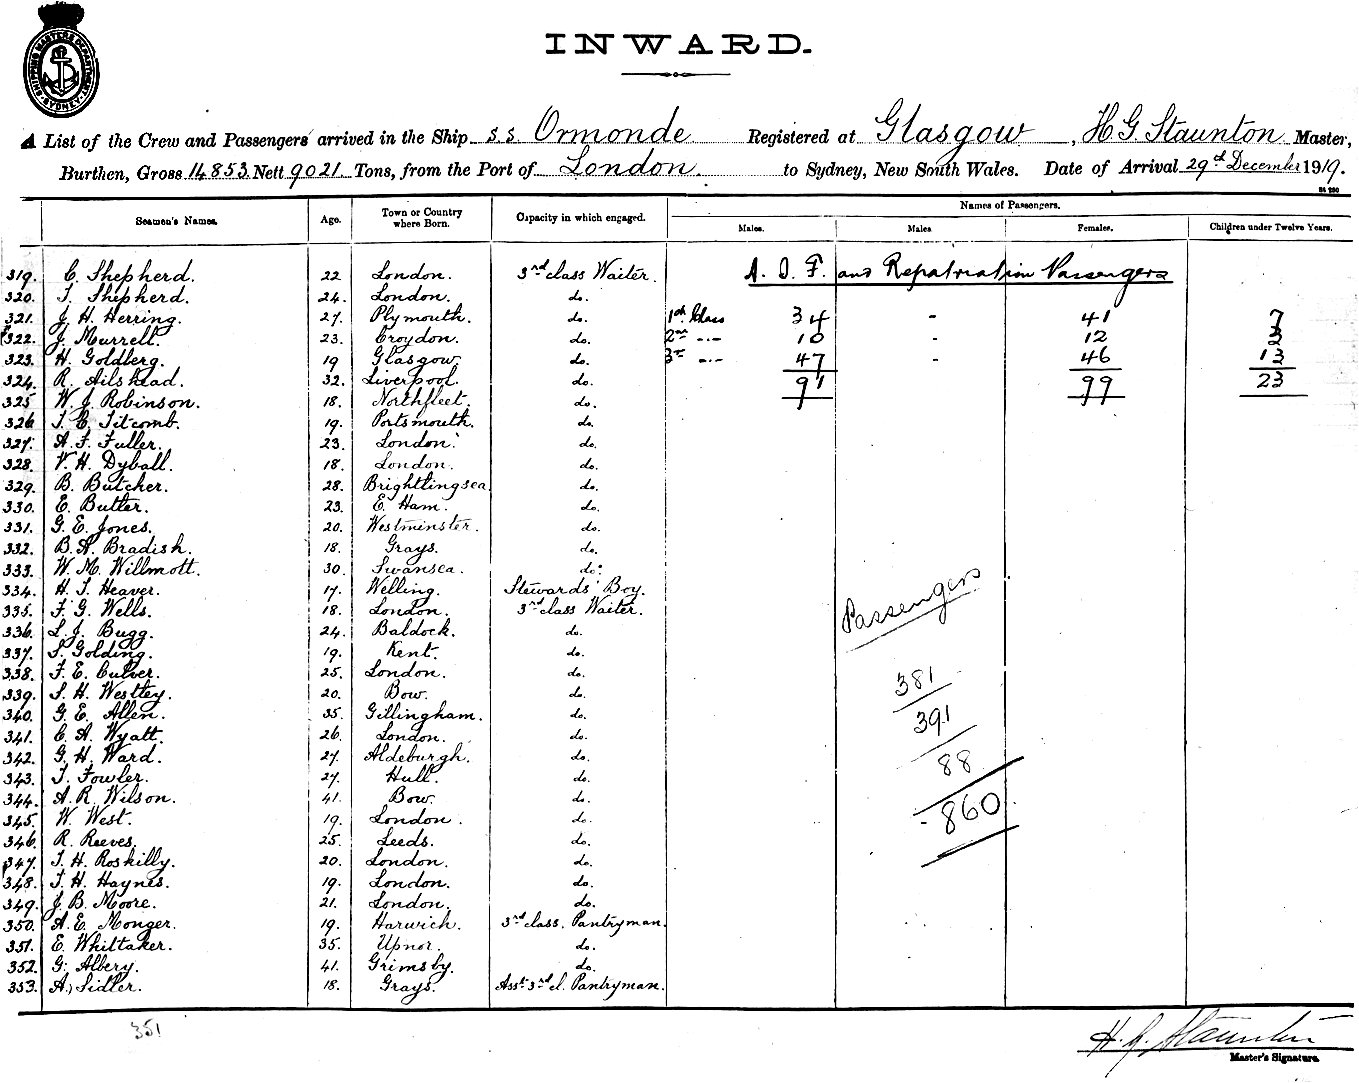 SHIPPING MASTERS DEPARTMENT SYDNEY
INWARD.
A List of the Crew and Passengers arrived in the Ship S.S. Ormonde Registered at Glasgow, H G Staunton Master,
Burthen, Gross 14853 Nett 9021 Tons, from the Port of London. to Sydney, New South Wales. Date of Arrival 29th December 1919.
Seamen's Names. Age. Town or Country where Born. Capacity in which engaged. Names of Passengers.
Males. Males Females. Children under Twelve Years.
319. C. Shepherd. 22 London. 3rd class Waiter. A. I. F. and Repatriation Passengers
320. T. Shepherd. 24. London. do.
321. J H. Herring. 27 Plymouth. do. 1st Class 34 - 41 7
322. J. Murrell. 23. Croydon. do. 2nd -.- 10 - 12 3
323. H. Goldberg. 19 Glasgow. do. 3rd -.- 47 - 46 13
324. R. Ailshead. 32. Liverpool. do. 91 99 23
325 W. J Robinson. 18. Northfleet. do.
326 T. E. Titcomb. 19. Portsmouth. do.
327. A. F. Fuller. 23. London. do.
328. V. H. Dyball. 18. London. do.
329. B. Butcher. 28. Brightlingsea do.
330. E. Butter. 23. E. Ham. do.
331. G. E. Jones. 20. Westminster. do.
332. B. A. Bradish. 18. Grays. do.
333. W. M. Willmott. 30. Swansea. do.
334. H. T. Heaver. 17. Welling. Stewards' Boy.
335. F. G. Wells. 18. London. 3rd class Waiter.
Passengers
336. L. J. Bugg. 24. Baldock. do.
337. S. Golding. 19. Kent. do.
338. F. E. Culver. 25. London. do.
381
339. S. H. Westley. 20. Bow. do.
340. G. E. Allen. 35. Gillingham. do.
391
341. C. A. Wyatt. 26. London. do.
342. G. H. Ward. 27. Aldeburgh. do.
88
343. T. Fowler. 27. Hull. do.
344. A. R. Wilson. 41. Bow. do.
860
345. W. West. 19. London. do.
346. R. Reeves. 25. Leeds. do.
347. T. H. Roskilly. 20. London. do.
348. T. H. Haynes. 19. London. do.
349. J. B. Moore. 21. London. do.
350. A. E. Monger. 19. Harwich. 3rd class. Pantryman.
351. E. Whittaker. 35. Upnor. do.
352. G. Albery. 41. Grimsby. do.
353. A. Sidler. 18. Grays. Asst. 3rd cl. Pantryman.
351
H. G. Staunton
Master's Signature.